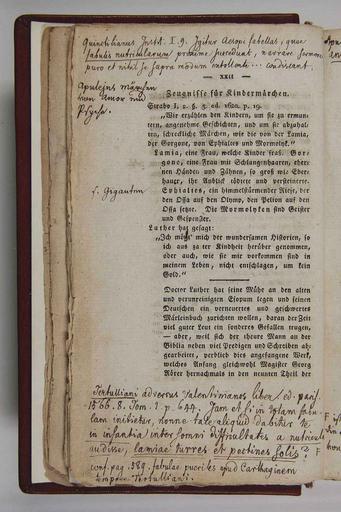 Quintilianus Instit. I. 9. Igitur Aesopi fabellas, quae
fabulis nutricularum proxime succedunt, narrare sermone
puro et nihil se supra modum extollente... condiscant.
— XXII —
Apulejus märchen
von Amor und
Psyche.
Zeugnisse für Kindermärchen.
Strabo I. 2. §. 3. ed. 1620. p. 19.
„Wir erzählen den Kindern, um sie zu ermun-
tern, angenehme Geschichten, und um sie abzuhal-
ten, schreckliche Märchen, wie die von der Lamia,
der Gorgone, von Ephialtes und Mormolyk.“
Lamia, eine Frau, welche Kinder fraß. Gor-
gone, eine Frau mit Schlangenhaaren, eher-
nen Händen und Zähnen, so groß wie Eber-
hauer, ihr Anblick tödtete und versteinerte.
Ephialtes, ein himmelstürmender Riese, der
den Ossa auf den Olymp, den Pelion auf den
Ossa setzte. Die Mormolyken sind Geister
und Gespenster.
s. Giganten
Luther hat gesagt:
„Ich möcht mich der wundersamen Historien, so
ich aus zarter Kindheit herüber genommen,
oder auch, wie sie mir vorkommen sind in
meinem Leben, nicht entschlagen, um kein
Gold.“
Doctor Luther hat seine Mühe an den alten
und verunreinigten Esopum legen und seinen
Deutschen ein verneuertes und geschwertes
Märleinbuch zurichten wollen, daran der Zeit
viel guter Leut ein sonderes Gefallen trugen,
— aber, weil sich der theure Mann an der
Biblien neben viel Predigen und Schreiben ab-
gearbeitet, verblieb dies angefangene Werk,
welches Anfang gleichwohl Magister Georg
Rörer hernachmals in den neunten Theil der
Tertulliani adversus valentinianos liber (ed. paris.
1566. 8. Tom. 1. p. 644. Jam et si in totam fabu-
lam initietur, nonne tale aliquid dabitur te
in infantia inter somni difficultates a nutricula
audisse, lamiae turres et pectines solis?
conf. pag. 389. fabulae pueriles apud Carthaginem
tempore Tertulliani.